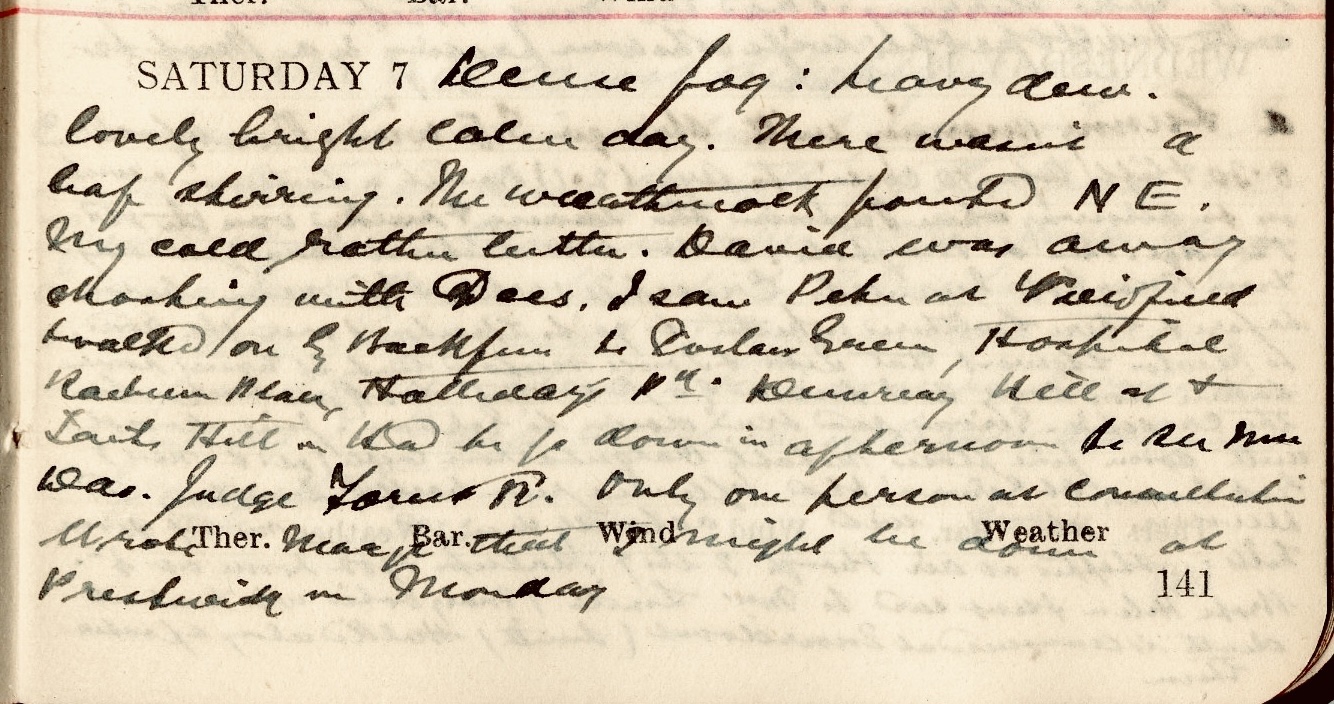 Ther. Bar. Wind
SATURDAY 7 Dense fog: heavy dew.
lovely bright calm day. There wasn't a
leaf stirring. The weathercock pointed N E.
My cold rather better. David was away
shooting with Dees. I saw Peter at Viewfield
walked on by Blackfriars to Green, Hospital
Place, Halliday's Hill at
Hill Had to go down in afternoon to see Mrs
Judge R. Only one person at consultation
Wrote Marge that I might be down at
Ther. Bar. Wind Weather
Prestwick on Monday
141